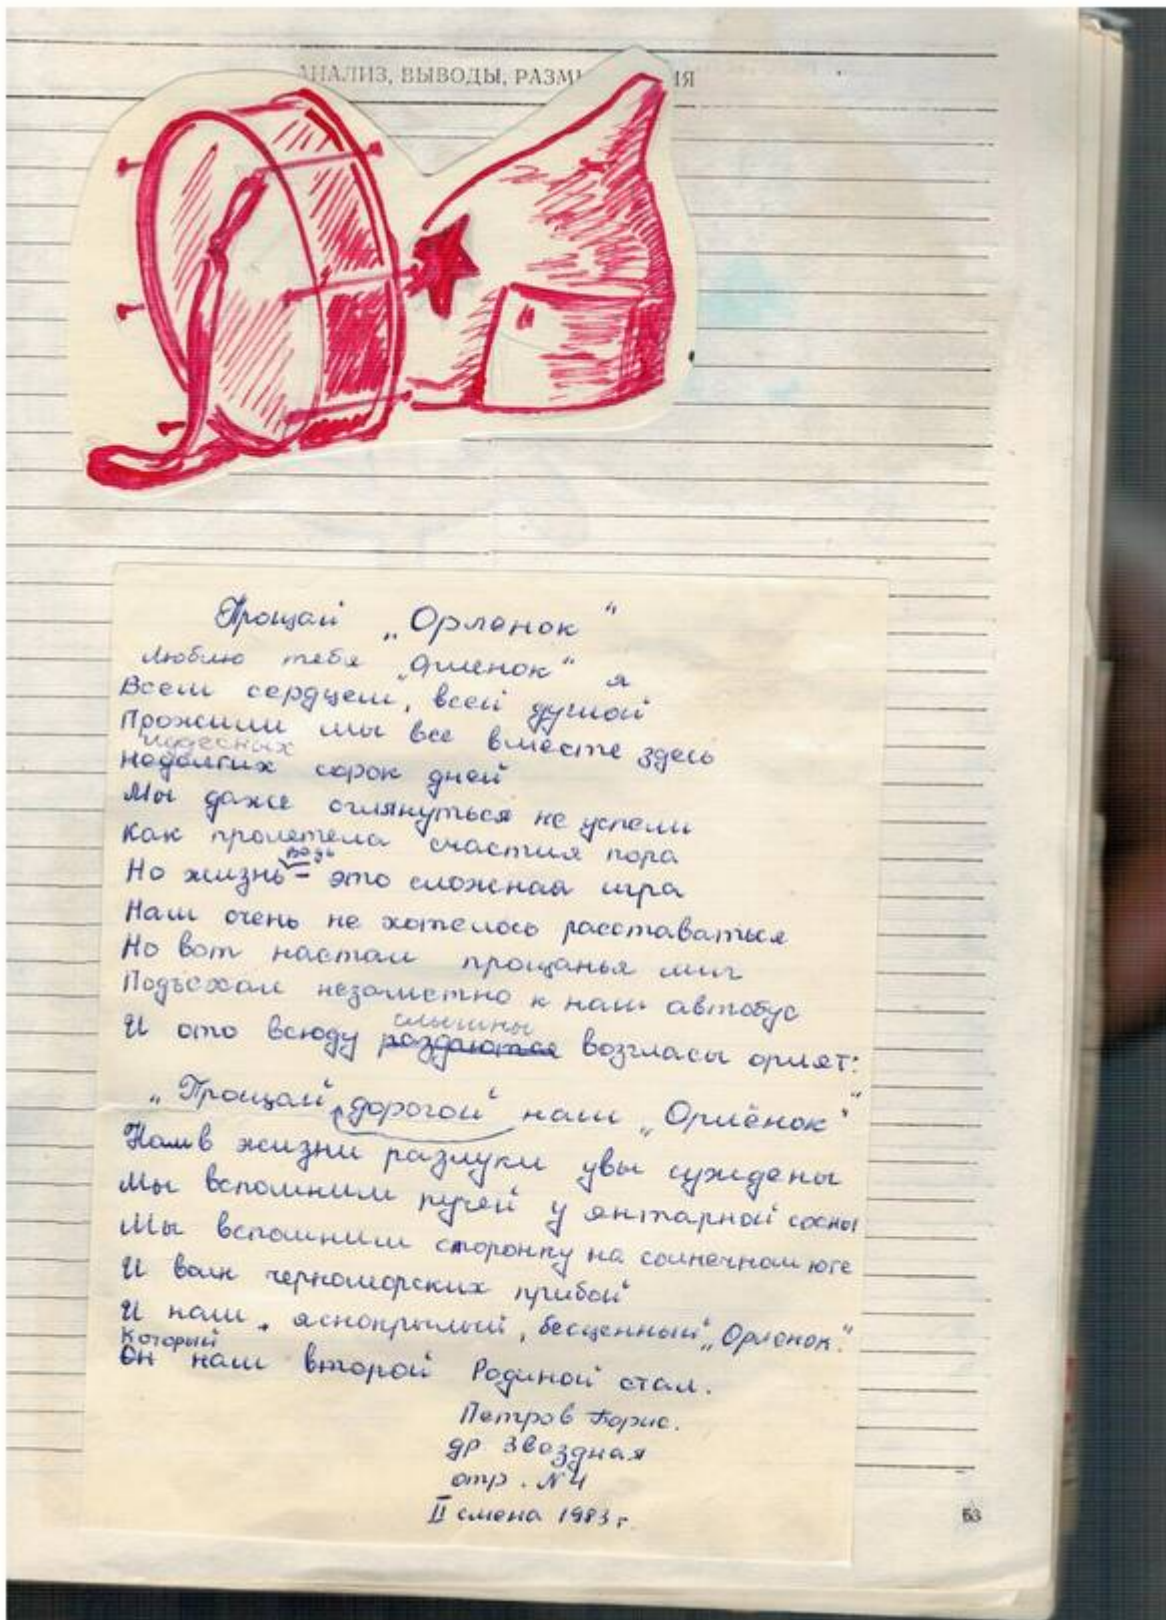 АНАЛИЗ, ВЫВОДЫ, РАЗМЫ ИЯ
Прощай „Орленок“
Люблю тебя „Орленок“ я
Всем сердцем, всей душой
Прожили мы все вместе здесь
чудесных
недолгих сорок дней
Мы даже оглянуться не успели
Как пролетела счастия пора
ведь
Но жизнь – это сложная игра
Нам очень не хотелось расставаться
Но вот настал прощанья миг
Подъехал незаметно к нам автобус
слышны
И ото всюду раздаются возгласы орлят:
„Прощай дорогой наш „Орлёнок“
Нам в жизни разлуки увы суждены
Мы вспомним ручей у янтарной сосны
Мы вспомним сторонку на солнечном юге
И волн черноморских прибой
И наш, яснокрылый, бесценный „Орленок“.
который
Он нам второй Родиной стал.
Петров Борис.
др Звездная
отр. №4
II смена 1983 г.
53